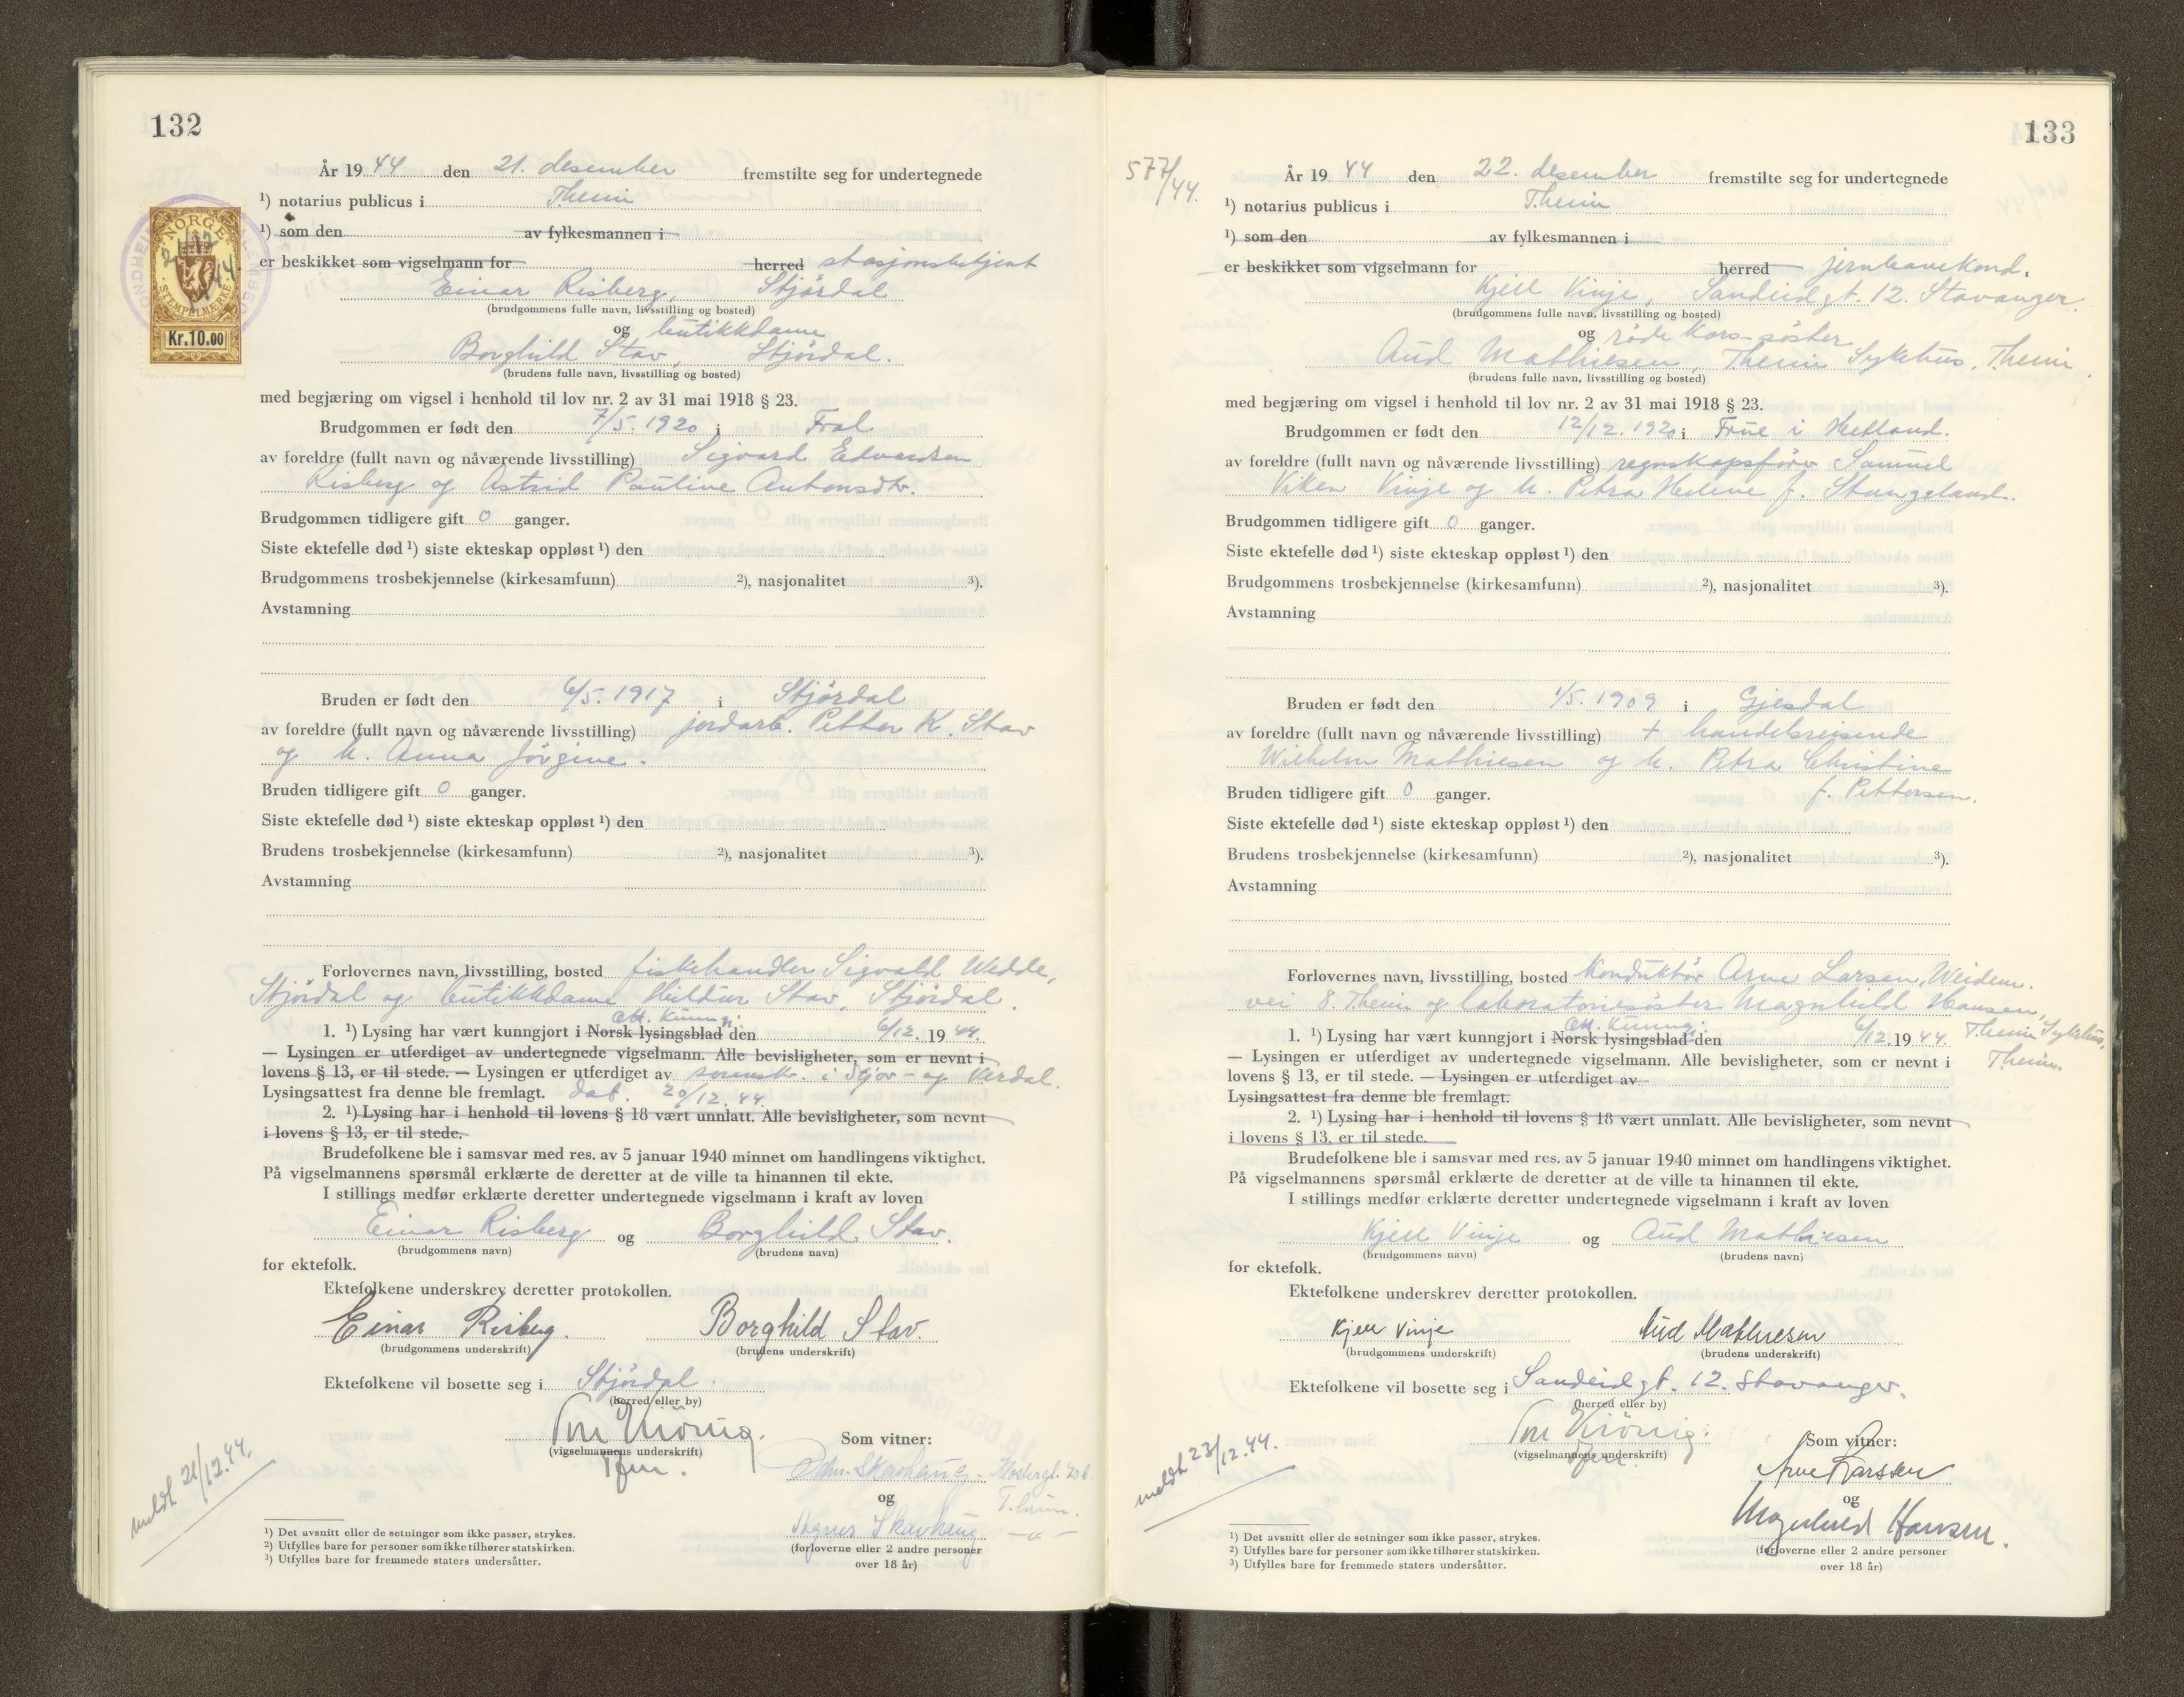 132
År 1944 den 21. desember fremstilte seg for undertegnede
¹) notarius publicus i T.heim
¹) som den av fylkesmannen i
er beskikket som vigselmann for herred stasjonsbetjent
Einar Risberg, Stjördal
(brudgommens fulle navn, livsstilling og bosted)
og butikkdame
Borghild Stav, Stjördal.
(brudens fulle navn, livsstilling og bosted)
NORGE
STEMPELMERKE
21/12 44.
Kr.10.00
med begjæring om vigsel i henhold til lov nr. 2 av 31 mai 1918 § 23.
Brudgommen er født den 7/5. 1920 i Frol
av foreldre (fullt navn og nåværende livsstilling) Sigvard Edvardsen
Risberg og Astrid Pauline Antonsdtr.
Brudgommen tidligere gift 0 ganger.
Siste ektefelle død ¹) siste ekteskap oppløst ¹) den
Brudgommens trosbekjennelse (kirkesamfunn) ²), nasjonalitet ³).
Avstamning
Bruden er født den 6/5. 1917 i Stjördal
av foreldre (fullt navn og nåværende livsstilling) jordarb. Petter K. Stav
og h. Anna Jörgine.
Bruden tidligere gift 0 ganger.
Siste ektefelle død ¹) siste ekteskap oppløst ¹) den
Brudens trosbekjennelse (kirkesamfunn) ²), nasjonalitet ³).
Avstamning
Forlovernes navn, livsstilling, bosted fiskehandler Sigvald Wedde,
Stjördal og butikkdame Hildur Stav, Stjördal.
ett. kunngj.
1. ¹) Lysing har vært kunngjort i Norsk lysingsblad den 6/12. 1944.
— Lysingen er utferdiget av undertegnede vigselmann. Alle bevisligheter, som er nevnt i
lovens § 13, er til stede. — Lysingen er utferdiget av sorensk. i Stjör- og Verdal.
Lysingsattest fra denne ble fremlagt. dat. 20/12. 44.
2. ¹) Lysing har i henhold til lovens § 18 vært unnlatt. Alle bevisligheter, som nevnt
i lovens § 13, er til stede.
Brudefolkene ble i samsvar med res. av 5 januar 1940 minnet om handlingens viktighet.
På vigselmannens spørsmål erklærte de deretter at de ville ta hinannen til ekte.
I stillings medfør erklærte deretter undertegnede vigselmann i kraft av loven
Einar Risberg og Borghild Stav.
(brudgommens navn) (brudens navn)
for ektefolk.
Ektefolkene underskrev deretter protokollen.
Einar Risberg. Borghild Stav.
(brudgommens underskrift) (brudens underskrift)
Ektefolkene vil bosette seg i Stjördal.
(herred eller by)
(vigselmannens underskrift)
Som vitner:
Skavhaug
T.heim.
og
Agnes Skavhaug —"—
(forloverne eller 2 andre personer
over 18 år)
meldt 21/12.44.
¹) Det avsnitt eller de setninger som ikke passer, strykes.
²) Utfylles bare for personer som ikke tilhører statskirken.
³) Utfylles bare for fremmede staters undersåtter.
133
577/44.
År 1944 den 22. desember fremstilte seg for undertegnede
¹) notarius publicus i T.heim
¹) som den av fylkesmannen i
er beskikket som vigselmann for herred jernbanekond.
Kjell Vinje, Sandeidgt. 12. Stavanger.
(brudgommens fulle navn, livsstilling og bosted)
og röde Kors-söster
Aud Mathiesen, T.heim Sykehus, T.heim.
(brudens fulle navn, livsstilling og bosted)
med begjæring om vigsel i henhold til lov nr. 2 av 31 mai 1918 § 23.
Brudgommen er født den 12/12. 1920 i Frue i Hetland.
av foreldre (fullt navn og nåværende livsstilling) regnskapsförer Samuel
Viken Vinje og h. Petra Helene f. Stangeland.
Brudgommen tidligere gift 0 ganger.
Siste ektefelle død ¹) siste ekteskap oppløst ¹) den
Brudgommens trosbekjennelse (kirkesamfunn) ²), nasjonalitet ³).
Avstamning
Bruden er født den 1/5. 1909 i Gjesdal
av foreldre (fullt navn og nåværende livsstilling) + handelsreisende
Wilhelm Mathiesen og h. Petra Christine
f. Pettersen.
Bruden tidligere gift 0 ganger.
Siste ektefelle død ¹) siste ekteskap oppløst ¹) den
Brudens trosbekjennelse (kirkesamfunn) ²), nasjonalitet ³).
Avstamning
Forlovernes navn, livsstilling, bosted Konduktör Arne Larsen, Weidem.
vei 8. T.heim og laboratoriesöster Magnhild Hansen,
T.heim Sykehus,
T.heim.
ett. kunngj.
1. ¹) Lysing har vært kunngjort i Norsk lysingsblad den 6/12. 1944.
— Lysingen er utferdiget av undertegnede vigselmann. Alle bevisligheter, som er nevnt i
lovens § 13, er til stede. — Lysingen er utferdiget av
Lysingsattest fra denne ble fremlagt.
2. ¹) Lysing har i henhold til lovens § 18 vært unnlatt. Alle bevisligheter, som nevnt
i lovens § 13, er til stede.
Brudefolkene ble i samsvar med res. av 5 januar 1940 minnet om handlingens viktighet.
På vigselmannens spørsmål erklærte de deretter at de ville ta hinannen til ekte.
I stillings medfør erklærte deretter undertegnede vigselmann i kraft av loven
Kjell Vinje og Aud Mathiesen
(brudgommens navn) (brudens navn)
for ektefolk.
Ektefolkene underskrev deretter protokollen.
Kjell Vinje Aud Mathiesen
(brudgommens underskrift) (brudens underskrift)
Ektefolkene vil bosette seg i Sandeidgt. 12. Stavanger.
(herred eller by)
(vigselmannens underskrift)
Som vitner:
Arne Larssen
og
Magnhild Hansen.
(forloverne eller 2 andre personer
over 18 år)
meldt 23/12.44.
¹) Det avsnitt eller de setninger som ikke passer, strykes.
²) Utfylles bare for personer som ikke tilhører statskirken.
³) Utfylles bare for fremmede staters undersåtter.